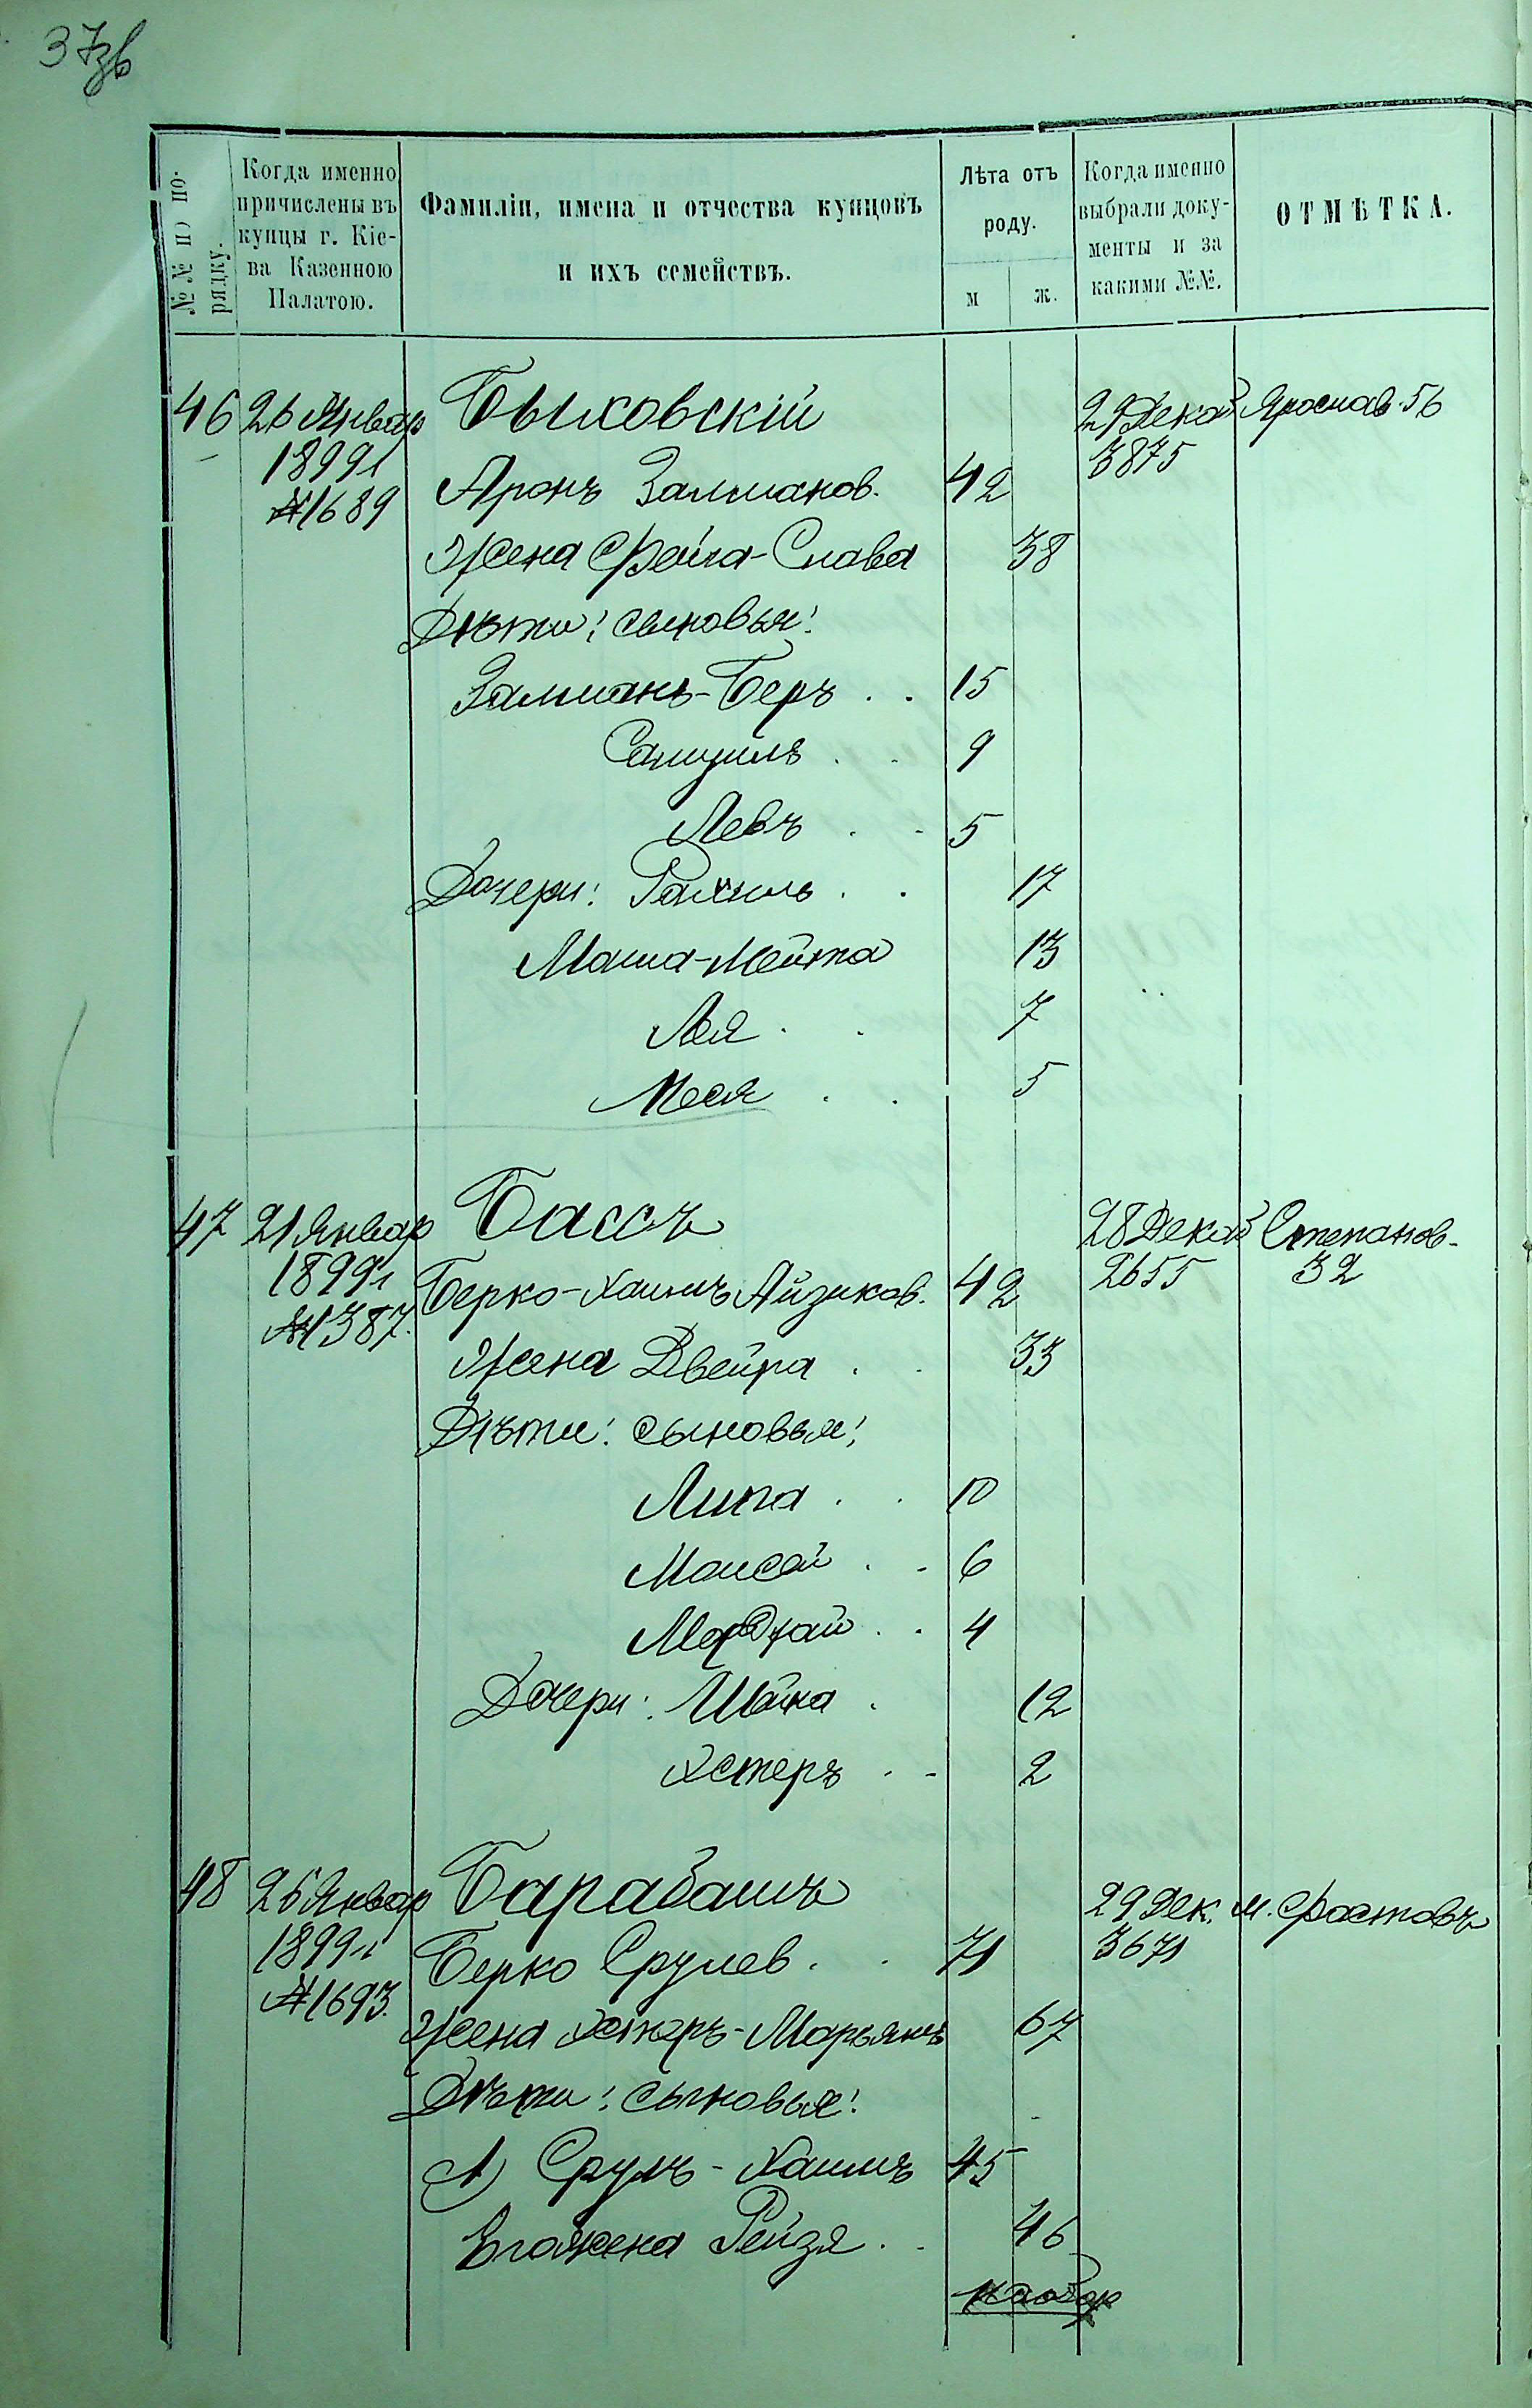 37зв
№№ по порядку.
Когда именно причислены въ купцы г. Кіева Казенною Палатою.
Фамиліи, имена и отчества купцовъ и ихъ семействъ.
Лѣта отъ роду.
м ж.
Когда именно выбрали документы и за какими №№.
ОТМѢТКА.
46 26 Январ Быховскій 29 Декаб Ярослав. 56
1899 г 3875
№1689 Аронъ Залманов. 42
Жена Фейга-Слава 38
Дѣти: сыновья:
Залманъ-Беръ . . 15
Самуилъ . . 9
Левъ . . 5
Дочери: Рахиль . . 17
Маша-Мейта 13
Лея . . 7
Песя . . 5
47 21 Январ Бассъ 28 Декаб Степанов.
1899 г Берко-Хаимъ Айзиков. 42 2655 32
№1387.
Жена Двейра . . 33
Дѣти: сыновья:
Липа . . 10
Моисей . . 6
Мордхай . . 4
Дочери: Шейна . 12
Хстеръ . . 2
48 26 Январ Барабашъ 29 Дек. м. Фастовъ
1899 г Берко Срулев. . 71 3671
№1693.
Жена Хстеръ-Марьямъ 67
Дѣти: сыновья:
1) Сруль-Хаимъ 45
Его жена Рейзя . . 46
на обор